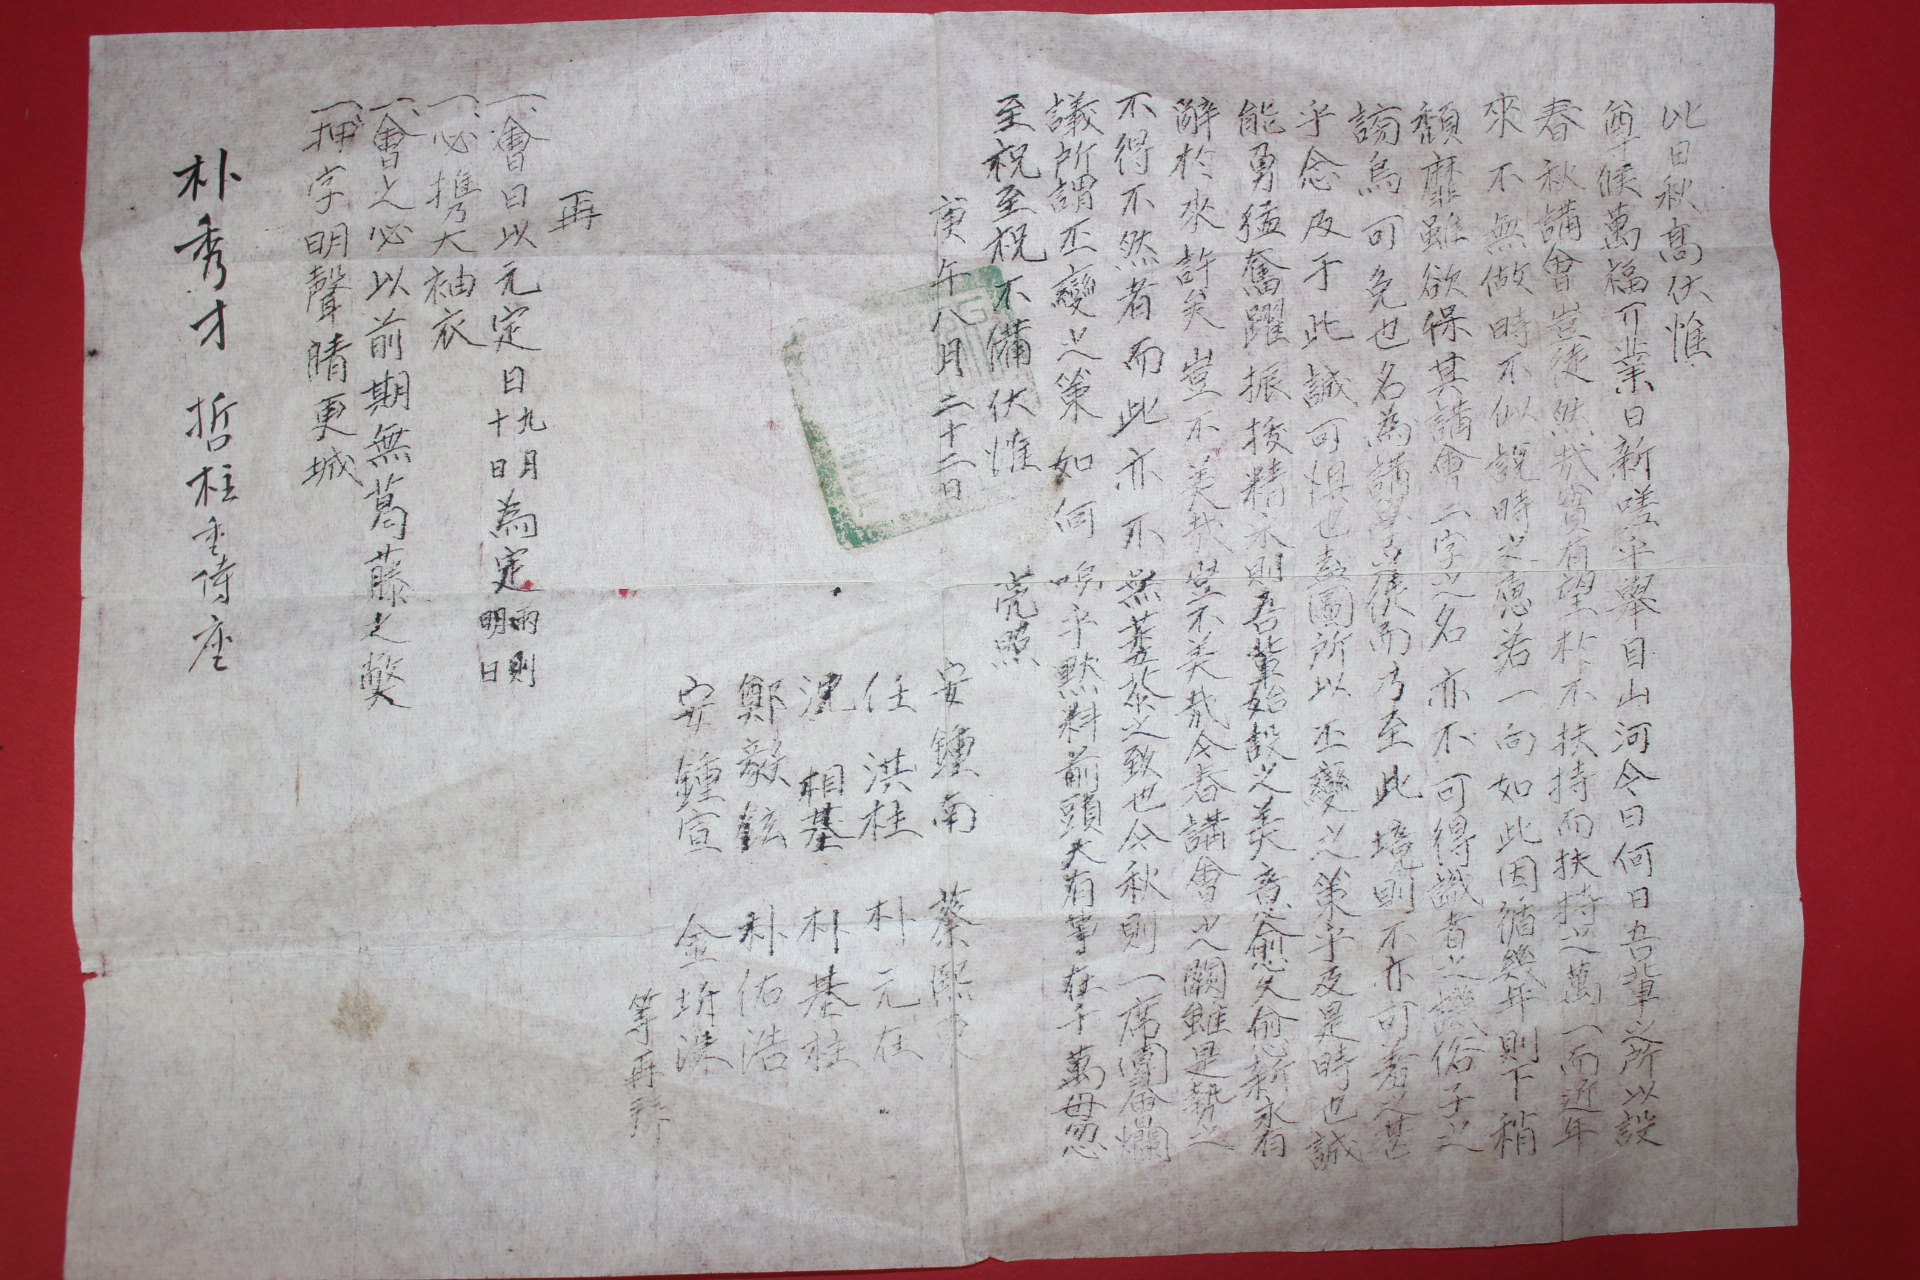 此日秋高伏惟
尊候萬福可業日新嗟乎舉目山河今日何日吾輩之所以設
春秋講會豈徒然哉實有望於不扶持而扶持之萬一而近年
來不無做時不似說時之患若一向如此因循幾年則下稍
頹靡雖欲保其講會二字之名亦不可得識者之譏俗子之
謗烏可免也名為講 後而乃至此境則不亦可羞之甚
乎念及于此誠可惧也盍圖所以丕變之策乎及是時也誠
能勇猛奮躍振授精采則吾輩始設之美意愈久愈新永有
辭於來許矣豈不美哉豈不美哉今春講會之闕雖是勢之
不得不然者而此亦不無萎茶之致也今秋則一席團圝爛
議所謂丕變之策如何嗚乎默料前頭大有事在千萬毋忽
至祝至祝不備伏惟 亮照
庚午八月二十二日
安鍾南 蔡熙
任洪柱 朴元在
沈相基 朴基柱
鄭毅鉉 朴佑浩
安鍾宣 金 洙
等再拜
再
一、會日以元定日九月十日為定雨則明日
一、必携大袖衣
一、會之必以前期無葛藤之弊
一、押字明聲晴更城
朴秀才 哲柱 侍座